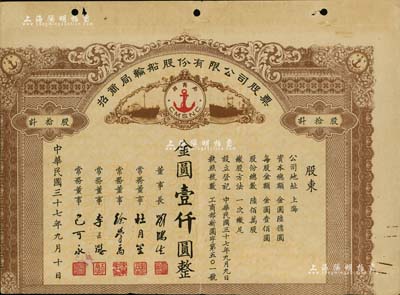 上海陽明拍賣
招商局輪船股份有限公司股票
招商局
CMSNC
計拾股
計拾股
股東
公司地址 上海
資本總額 金圓陸億圓
每股金額 金圓壹佰圓
股份總數 陸佰萬股
繳股方法 一次繳足
設立登記 中華民國三十七年九月九日
執照號數 工商部新國字第五〇一號
金圓壹仟圓整
董事長 劉鴻生
常務董事 杜月笙
常務董事 徐學禹
常務董事
常務董事
中華民國三十七年九月十日
上海陽明拍賣